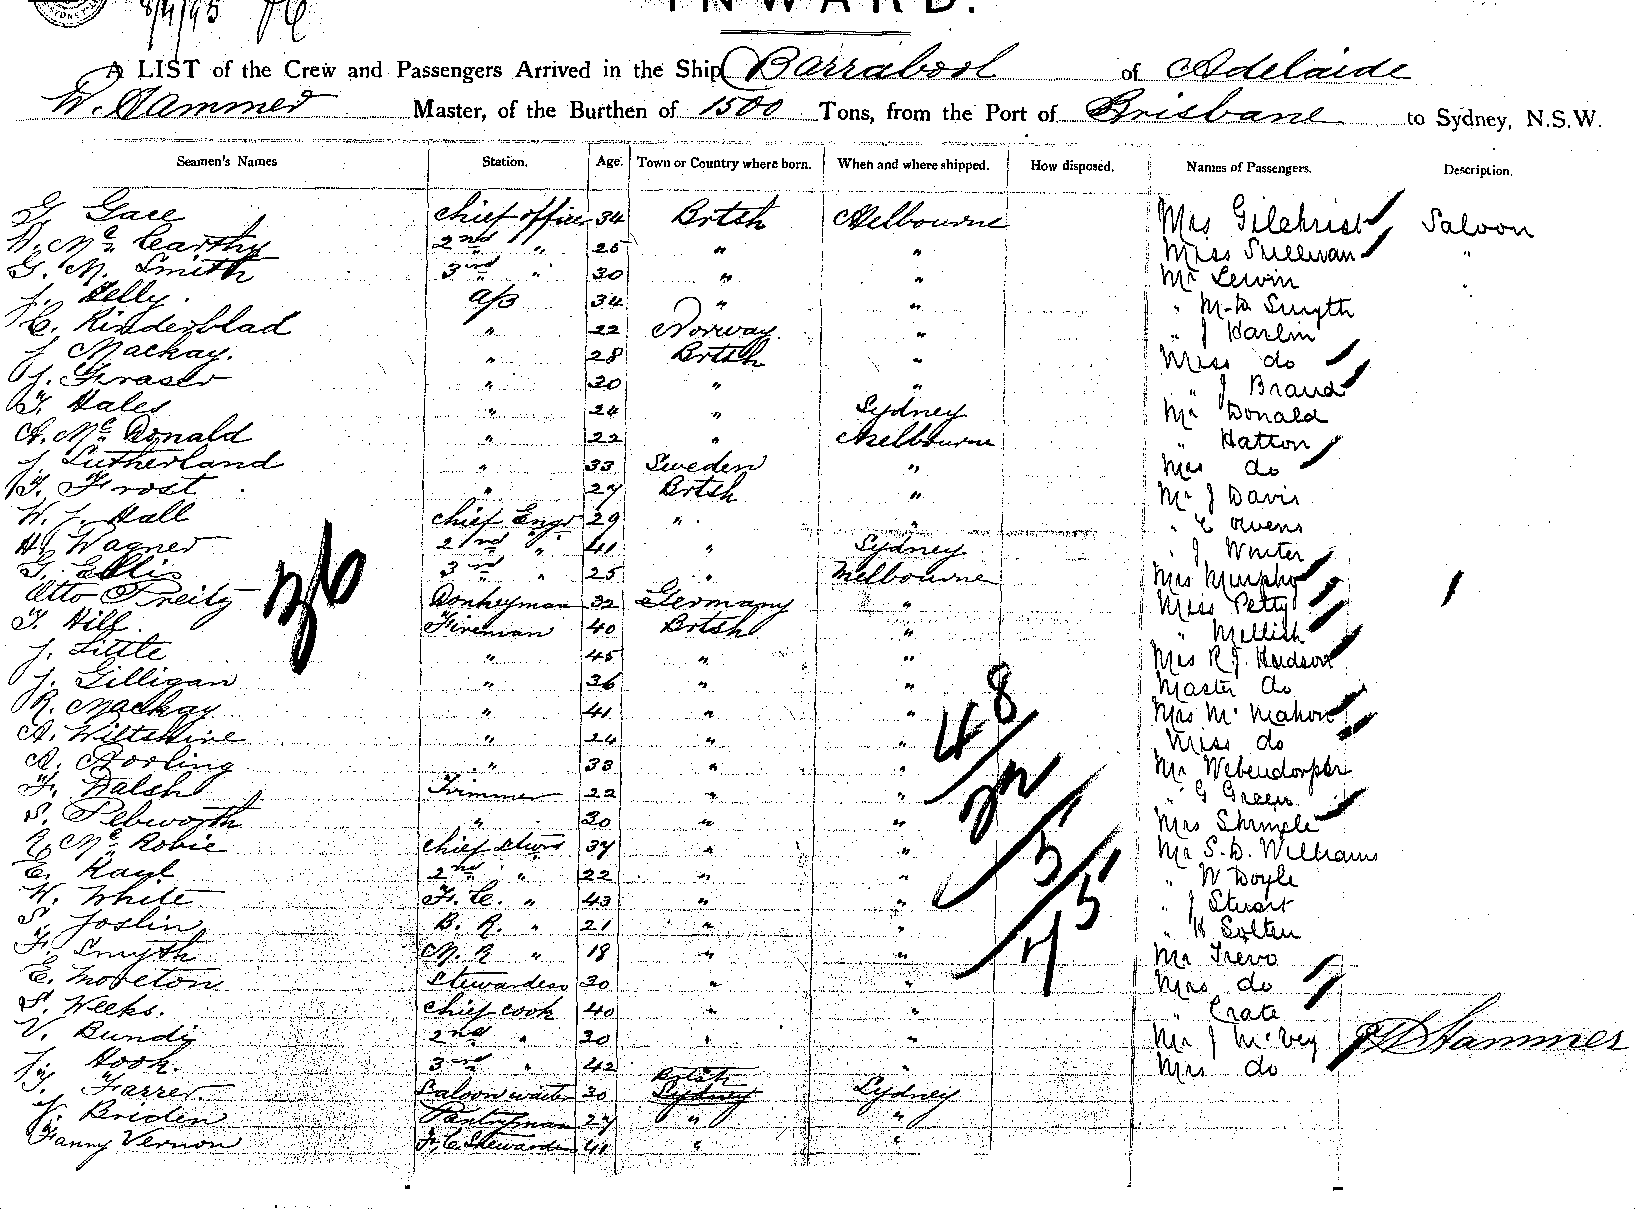 8/4/95
INWARD.
A LIST of the Crew and Passengers Arrived in the Ship Barrabool of Adelaide
Master, of the Burthen of 1500 Tons, from the Port of Brisbane to Sydney, N.S.W.
Seamen's Names Station. Age. Town or Country where born. When and where shipped. How disposed. Names of Passengers. Description.
Gace chief officer 34 Brtsh Melbourne Mrs Gilchrist Saloon
Mc Carthy 2nd " 25 " " Miss Sullivan "
G. M. Smith 3rd " 30 " " Mr Lewin
J. Kelly. a/b 34 " " " M. D. Smyth
C. Rinderblad " 22 Norway " " J Harlin
J Mackay. " 28 Brtsh " Miss do
J. Fraser " 20 " " " J Braud
T. Hales " 24 " Sydney Mr Donald
A. Mc Donald " 22 " Melbourne " Hatton
J. Sutherland " 33 Sweden " Mrs do
T. Frost " 27 Brtsh " Mr J Davis
W. J. Hall chief Engr 29 " " " E Owens
H. Wagner 2nd " 41 " Sydney " J Winter
G. Ellis 3rd " 25 " Melbourne Mrs Murphy
Otto Donkeyman 32 Germany " Miss Petty
T. Hill Fireman 40 Brtsh " " Mellish
J. Little " 45 " " Mrs R. J. Hudson
J. Gilligan " 36 " " Master do
R. Mackay " 41 " " Mrs McMahon
A. Wiltshire " 24 " " Miss do
A. " 33 " " Mr Webendorfer
F. Walsh Trimmer 22 " " " G Green
S. Pebworth " 30 " " Mrs Shimple
Mc Robie chief stwd 37 " " Mr S. D. Williams
E. Kaye 2nd " 22 " " " W Doyle
W. White F. C. " 43 " " " J Stuart
S. Joslin B. R. " 21 " " " H Solten
F. Smyth M. R " 18 " " Mr Trevo
E. Moreton Stewardess 30 " " Mrs do
S. Weeks. chief cook 40 " " " Crate
V. Bundy 2nd " 30 " " Mr J McVey
J. Hook. 3rd " 42 " " Mrs do
T. Farrer. Saloon waiter 30 Brtsh Sydney Sydney
J. Briden Pantryman 27 " "
Fanny Vernon F. C. Stewardess 41 " "
36
48
32
5
45